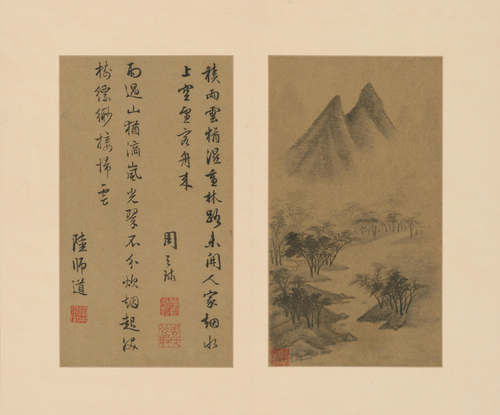 積雨雲猶濕重林路未開人家煙水
上空客舟來
周天球
雨過山猶滴嵐光翠不分炊煙起深
樹縹緲接歸雲
陸師道